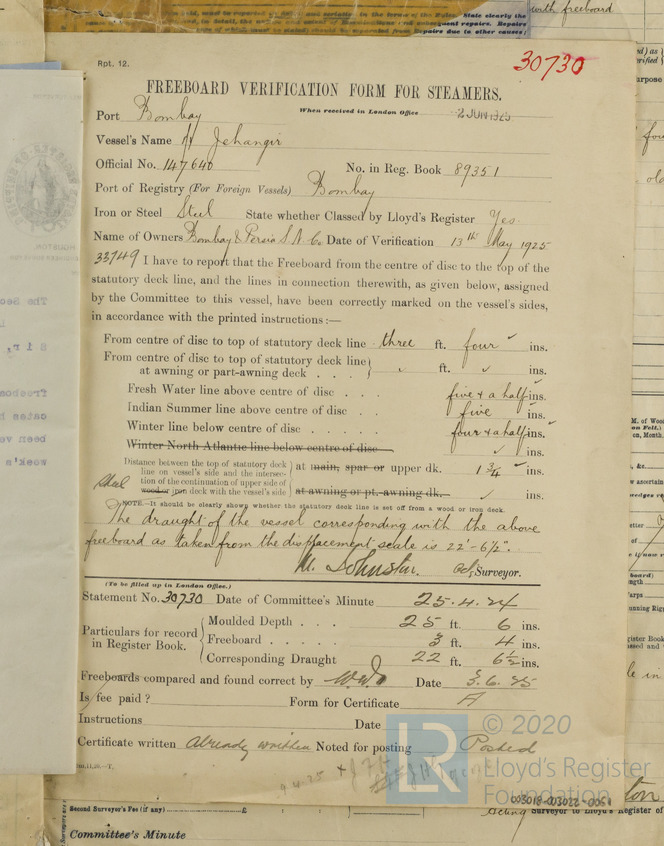 with freeboard
Rpt. 12.
30730
FREEBOARD VERIFICATION FORM FOR STEAMERS.
Port Bombay When received in London Office 2 JUN 1925
Vessel's Name Jehangir
Official No. 147640 No. in Reg. Book 89351
Port of Registry (For Foreign Vessels) Bombay
Iron or Steel Steel State whether Classed by Lloyd's Register Yes
Name of Owners Bombay & Persia S. N. Co Date of Verification 13th May 1925
33749 I have to report that the Freeboard from the centre of disc to the top of the
statutory deck line, and the lines in connection therewith, as given below, assigned
by the Committee to this vessel, have been correctly marked on the vessel's sides,
in accordance with the printed instructions:—
From centre of disc to top of statutory deck line three ft. four ins.
From centre of disc to top of statutory deck line
at awning or part-awning deck . . . ft. ins.
Fresh Water line above centre of disc . . . five & a half ins.
Indian Summer line above centre of disc . . . five ins.
Winter line below centre of disc . . . . four & a half ins.
Winter North Atlantic line below centre of disc ins.
Distance between the top of statutory deck
line on vessel's side and the intersec-
tion of the continuation of upper side of
Steel wood or iron deck with the vessel's side
at main, spar or upper dk. 1 3/4 ins.
at awning or pt.-awning dk. ins.
NOTE.—It should be clearly shown whether the statutory deck line is set off from a wood or iron deck.
The draught of the vessel corresponding with the above
freeboard as taken from the displacement scale is 22'-6½".
M. Johnston. Surveyor.
(To be filled up in London Office.)
Statement No. 30730 Date of Committee's Minute 25.4.24
Particulars for record
in Register Book.
Moulded Depth . . . 25 ft. 6 ins.
Freeboard . . . . . 3 ft. 4 ins.
Corresponding Draught 22 ft. 6½ ins.
Freeboards compared and found correct by Date 3.6.25
Is fee paid? Form for Certificate A
Instructions Date
Certificate written Already written Noted for posting Posted
LR © 2020
Lloyd's Register
Foundation
003018-003022-0051
Second Surveyor's Fee (if any) £
Acting Surveyor to Lloyd's Register of
Committee's Minute